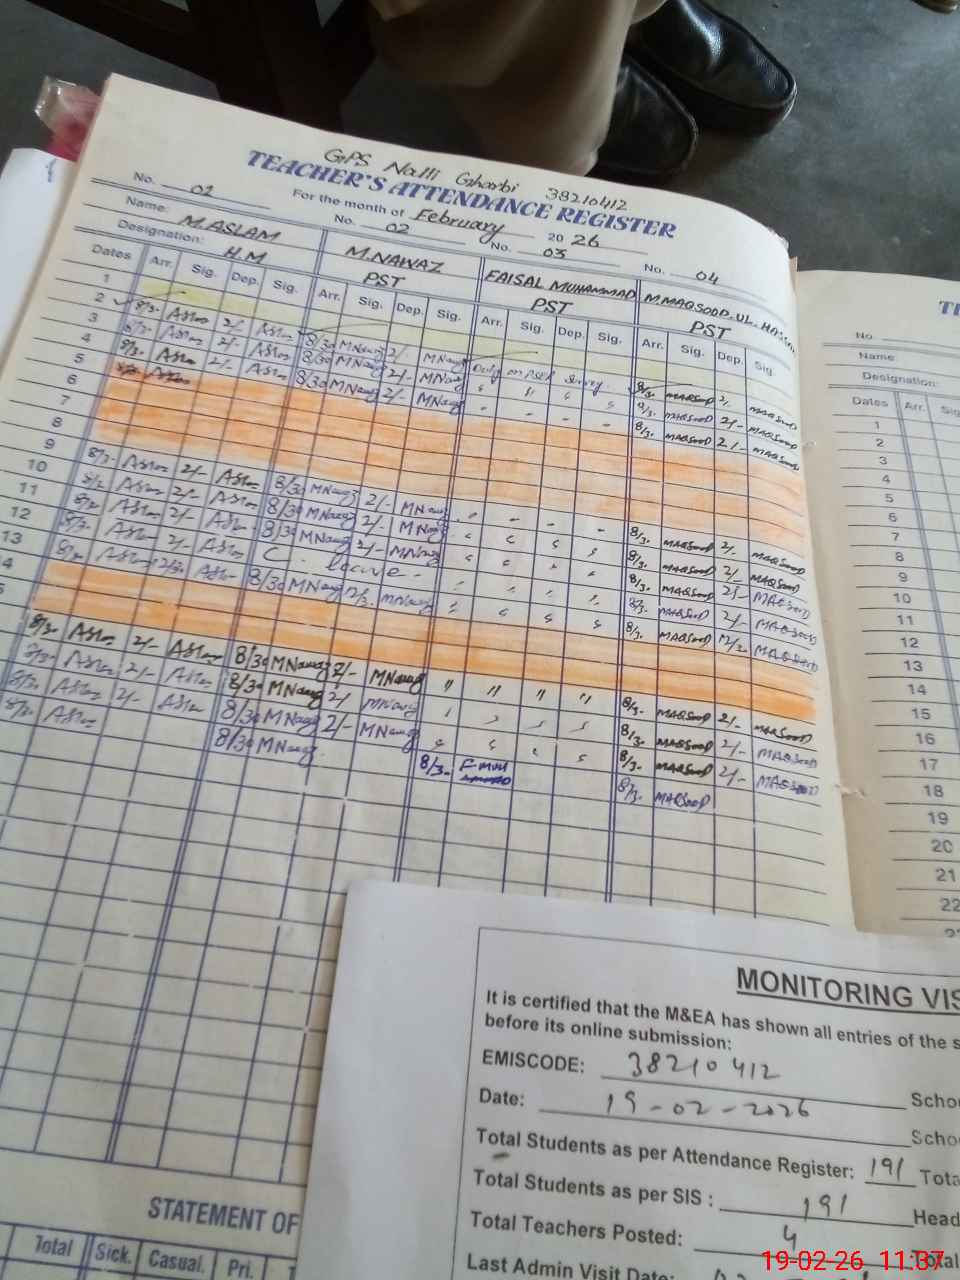 GPS Nalli Gharbi 38210412
TEACHER'S ATTENDANCE REGISTER
For the month of February 2026
No. 01 No. 02 No. 03 No. 04
Name: M.ASLAM M.NAWAZ FAISAL MUHAMMAD M.MAQSOOD-UL-HASSAN
Designation: H.M PST PST PST
Dates Arr. Sig. Dep. Sig. Arr. Sig. Dep. Sig. Arr. Sig. Dep. Sig. Arr. Sig. Dep. Sig.
1
2 8/3. Aslam 2/- Aslam 8/30 MNawaz 2/. MNawaz Duty on PSER Survey 8/3. MAQSOOD 2/. MAQSOOD
3 8/3. Aslam 2/- Aslam 8/30 MNawaz 2/- MNawaz 8/3. MAQSOOD 2/- MAQSOOD
4 8/3. Aslam 2/- Aslam 8/30 MNawaz 2/- MNawaz 8/3. MAQSOOD 2/- MAQSOOD
5
6
7
8
9 8/3. Aslam 2/- Aslam 8/30 MNawaz 2/- MNawaz 8/3. MAQSOOD 2/. MAQSOOD
10 8/3. Aslam 2/- Aslam 8/30 MNawaz 2/- MNawaz 8/3. MAQSOOD 2/- MAQSOOD
11 8/3. Aslam 2/- Aslam 8/30 MNawaz 2/- MNawaz 8/3. MAQSOOD 2/- MAQSOOD
12 8/3. Aslam 2/- Aslam C. leave - 8/3. MAQSOOD 2/- MAQSOOD
13 8/3. Aslam 12/30 Aslam 8/30 MNawaz 12/3. MNawaz 8/3. MAQSOOD 12/3. MAQSOOD
8/3. Aslam 2/- Aslam 8/30 MNawaz 2/- MNawaz " " " " 8/3. MAQSOOD 2/- MAQSOOD
8/3. Aslam 2/- Aslam 8/30 MNawaz 2/ MNawaz 8/3. MAQSOOD 2/- MAQSOOD
8/3. Aslam 2/- Aslam 8/30 MNawaz 2/- MNawaz 8/3. MAQSOOD 2/- MAQSOOD
8/3. Aslam 8/30 MNawaz 8/3. 8/3. MAQSOOD
STATEMENT OF
Total Sick. Casual. Pri.
No.
Name
Designation:
Dates Arr.
1
2
3
4
5
6
7
8
9
10
11
12
13
14
15
16
17
18
19
20
21
22
MONITORING VIS
It is certified that the M&EA has shown all entries of the s
before its online submission:
EMISCODE: 38210412
Date: 19-02-2026
Total Students as per Attendance Register: 191
Total Students as per SIS : 191
Head
Total Teachers Posted: 4
Last Admin Visit Date:
19-02-26 11:37